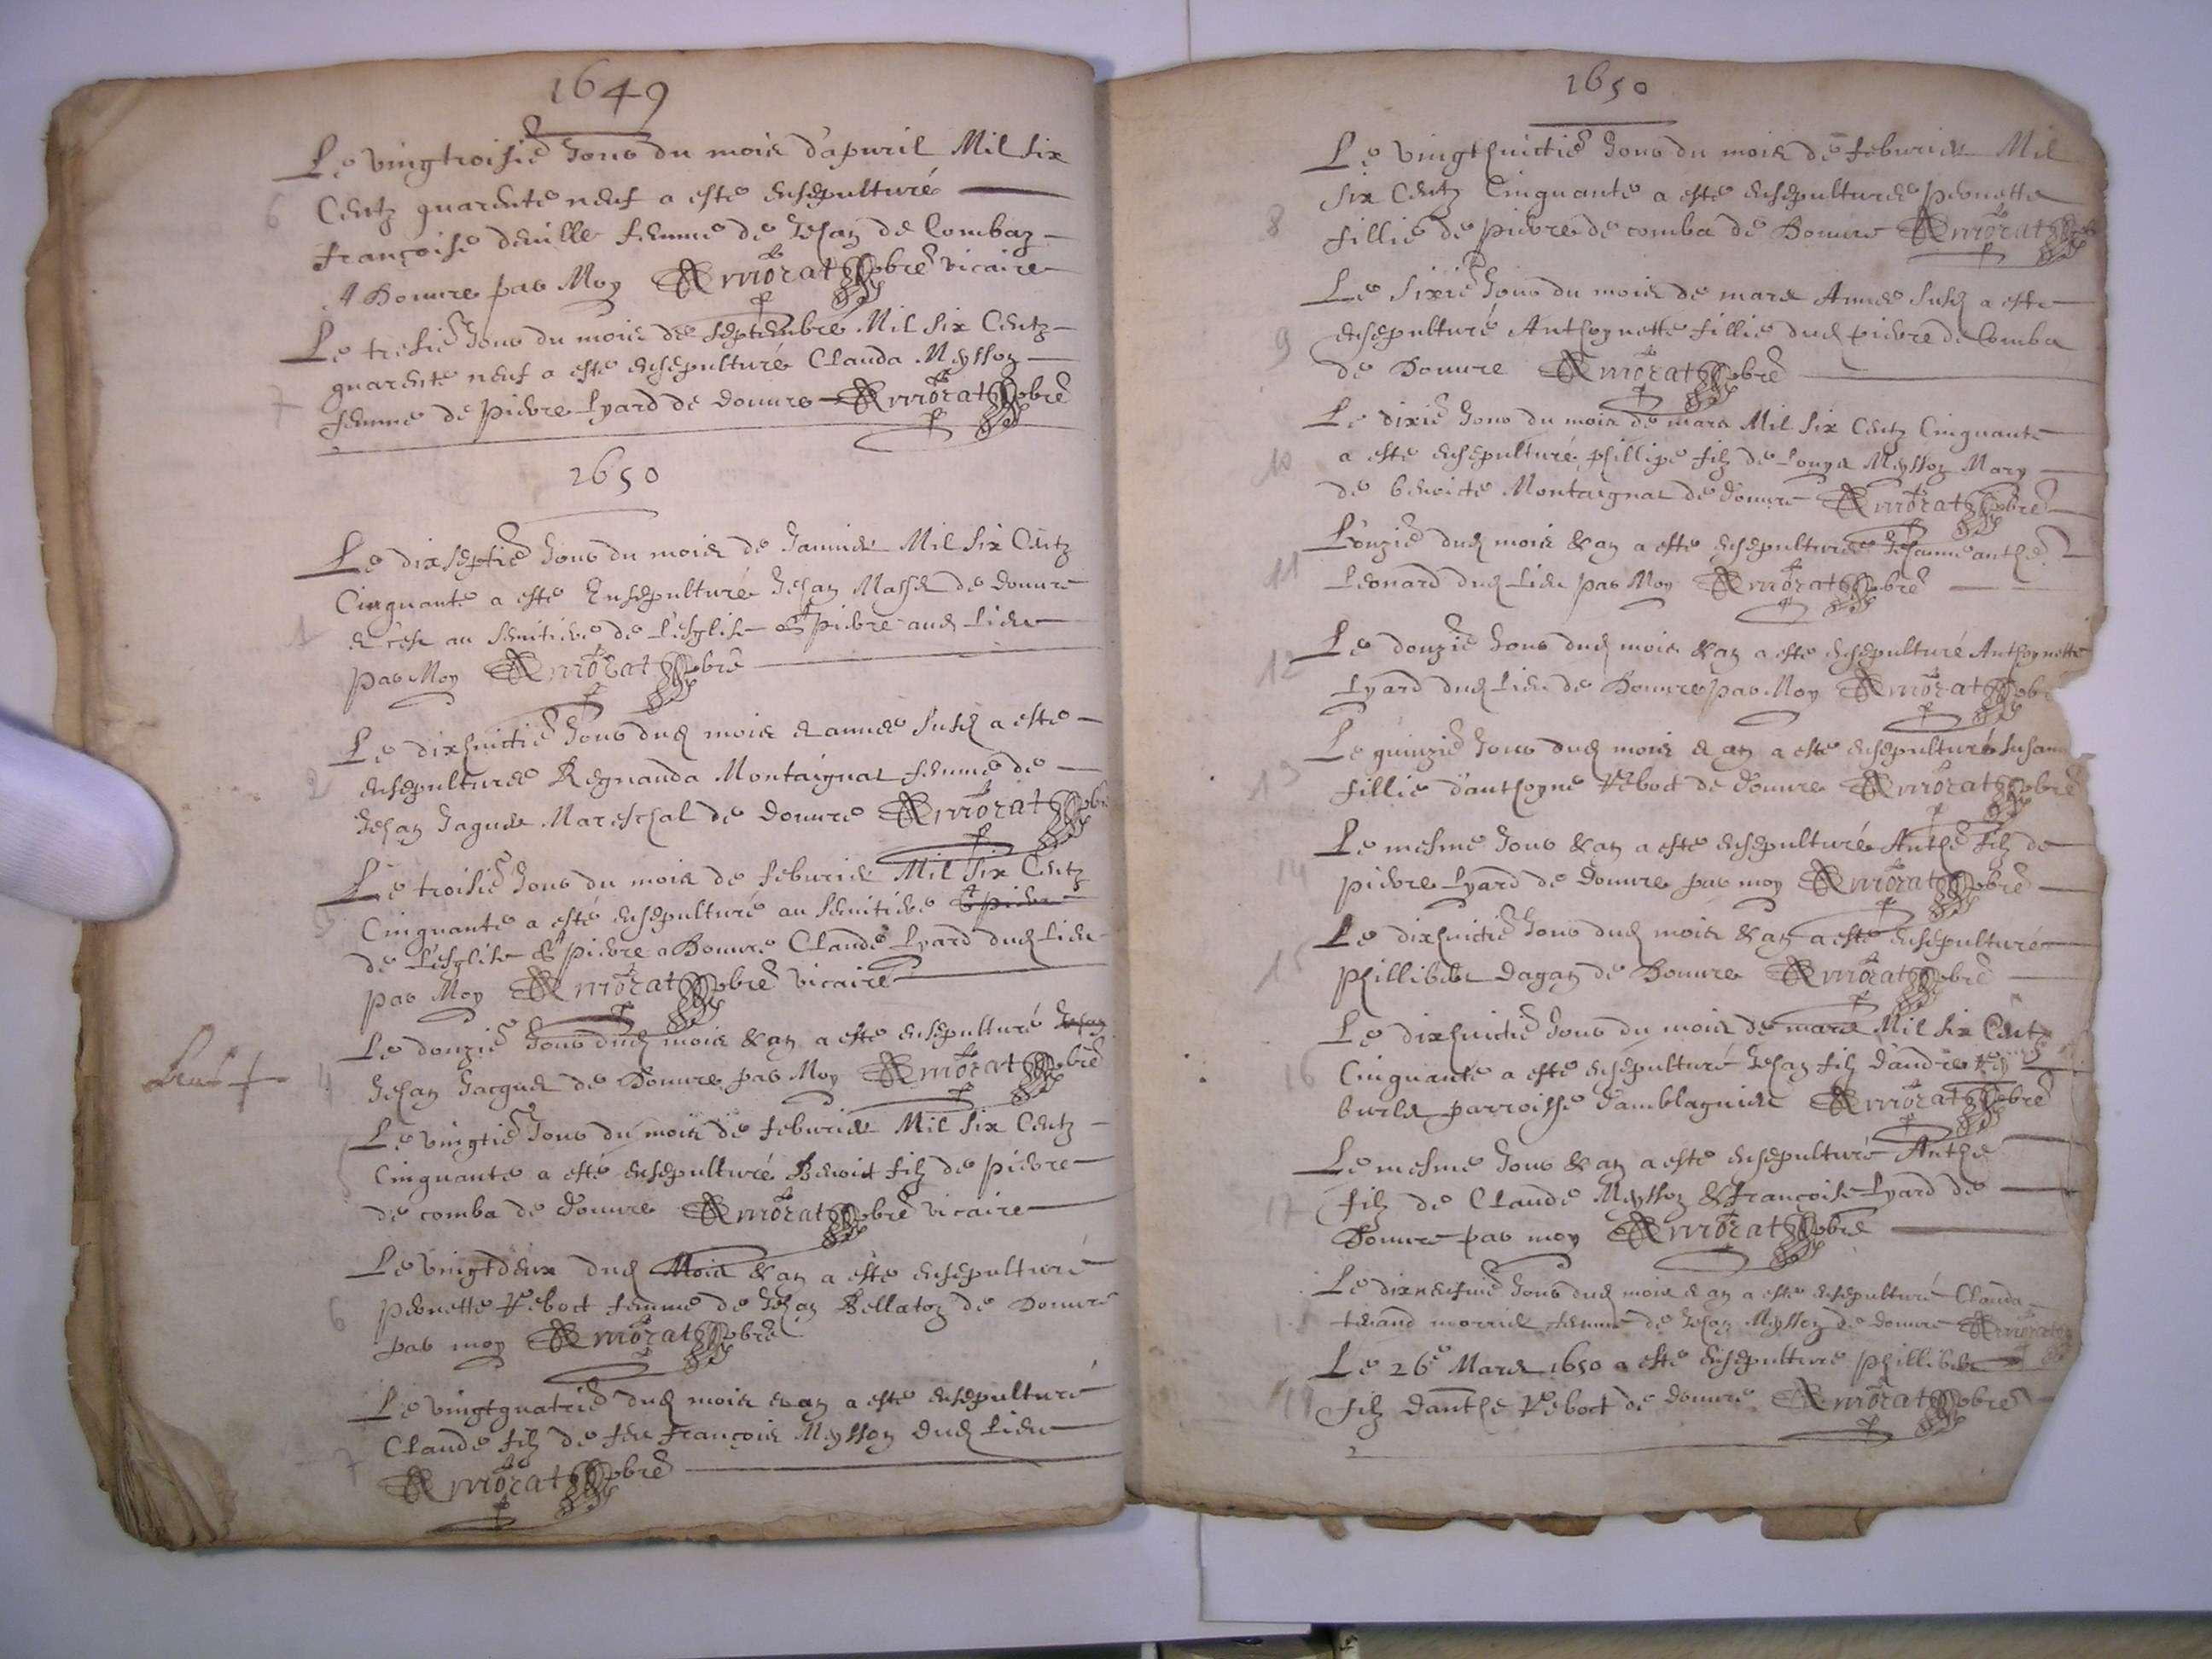 1649
Le vingtroisie Jour du mois d'apvril Mil six
6 Centz quarente neuf a esté ensepulturé
françoise deville femme de Jehan de Combaz
A Douvre par Moy Morat pbre vicaire
Le tresie Jour du mois de septembre Mil six Centz
quarente neuf a esté ensepulturé Clauda Meysson
7 femme de pierre Lyard de douvre Morat pbre
1650
Le dixseptie Jour du mois de Janvier Mil six Centz
Cinquante a esté Ensepulturé Jehan Masse de douvre
1 et c'est au semitiere de l'esglise St pierre aud lieu
par Moy Morat pbre
Le dixhuictie Jour dud mois et annee susd a esté
2 ensepulturee Regnauda Montaignat femme de
Jehan Jaques Mareschal de douvre Morat pbre
Le troisie Jour du mois de feburier Mil six Centz
3 Cinquante a esté ensepulturé au semitiere St pierre
de l'esglise St pierre a Douvre Claude Lyard dud lieu
par Moy Morat pbre vicaire
Le douzie Jour dud mois & an a esté ensepulturé Jehan
4 Jehan Jacques de Douvre par Moy Morat pbre
Le vingtie Jour du mois de feburier Mil six Centz
5 Cinquante a esté ensepulturé Benoit filz de pierre
de comba de douvre Morat pbre vicaire
Le vingtdeux dud Mois & an a esté ensepulturé
6 pernette Reboct femme de Jehan Bellaton de Douvre
par moy Morat pbre
Le vingtquatrie dud mois & an a esté ensepulturé
Claude filz de feu françois Meysson dud lieu
7 Morat pbre
1650
Le vingthuictie Jour du mois de feburier Mil
six Centz Cinquante a esté ensepulturee pernette
8 fillie de pierre de comba de Douvre Morat pbre
Le sixie Jour du mois de mars Annee susd a esté
9 ensepulturé Anthoynette fillie dud pierre de Comba
de Douvre Morat pbre
Le dixie Jour du mois de mars Mil six Centz Cinquante
10 a esté ensepulturé phillipe filz de Louys Meysson Mary
de benoicte Montaignat de douvre Morat pbre
L'onzie dud mois & an a esté ensepulturee Jehanne anthe
11 Leonard dud lieu par Moy Morat pbre
12 Le douzie Jour dud mois & an a esté ensepulturé Anthoynette
Lyard dud lieu de Douvre par Moy Morat pbr
Le quinzie Jour dud mois & an a esté ensepulturé Susann
13 fillie d'anthoyne Reboct de douvre Morat pbre
Le mesme Jour & an a esté ensepulturé Anthe filz de
14 pierre Lyard de Douvre par moy Morat pbre
Le dixhuictie Jour dud mois & an a esté ensepulturé
15 Phillibert Dagan de Douvre Morat pbre
Le dixhuictie Jour du mois de mars Mil six Centz
16 Cinquante a esté ensepulturé Jehan filz d'andre
parroisse d'amblagnieu Morat pbre
Le mesme Jour & an a esté ensepulturé Anthe
17 filz de Claude Meysson & françoise Lyard de
Douvre par moy Morat pbre
Le dixneufvie Jour dud mois & an a esté ensepulturé Clauda
18 femme de Jehan Meysson de douvre Morat
Le 26e Mars 1650 a esté ensepulturé phillibert
19 filz d'anthe Reboct de douvre Morat pbre